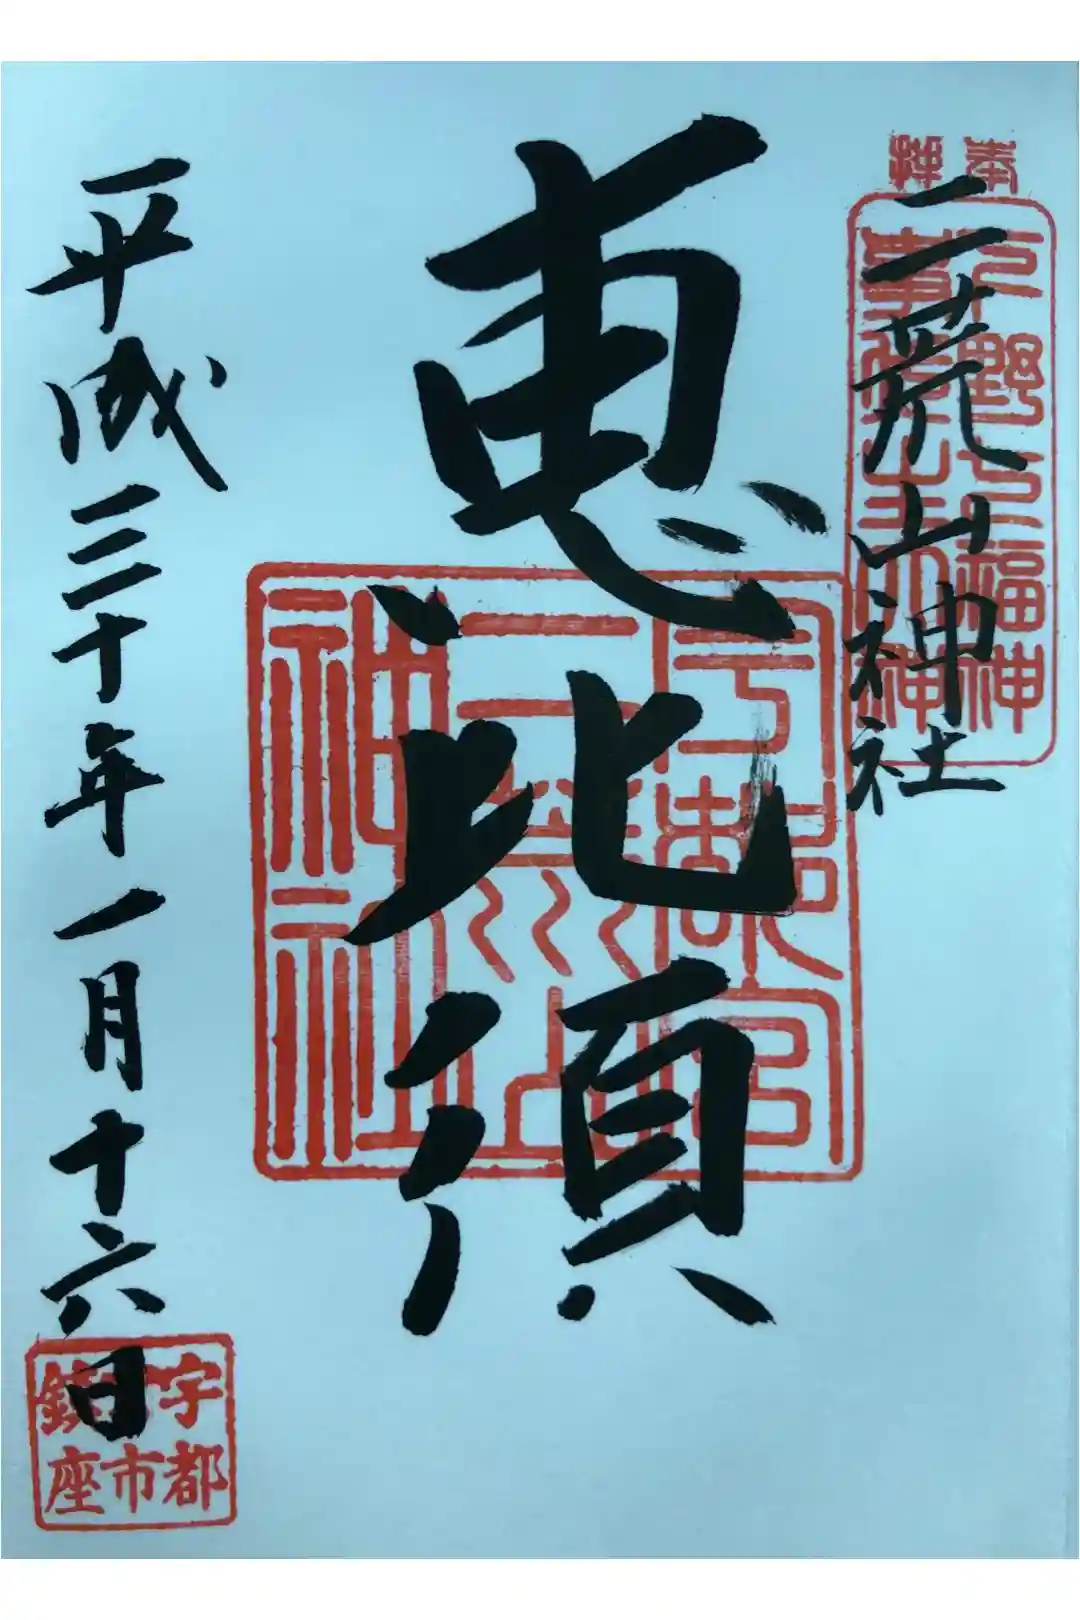 奉拝
下野七福神
事代主大神
二荒山神社
恵比須
宇都宮
二荒山
神社
平成三十年一月十六日
宇都
宮市
鎮座